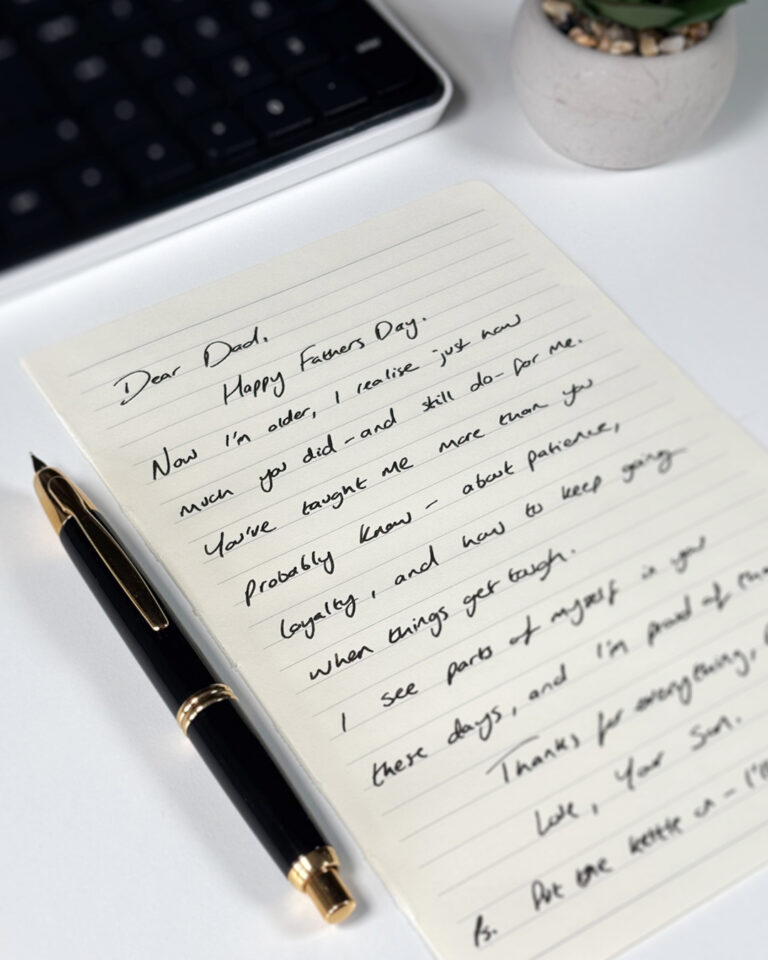 Dear Dad,
Happy Fathers Day.
Now I'm older, I realise just how
much you did - and still do - for me.
You've taught me more than you
probably know - about patience,
loyalty, and how to keep going
when things get tough.
I see parts of myself in you
these days, and I'm proud of
Thanks for everything,
Love, Your Son.
Ps. Put the kettle on - I'll